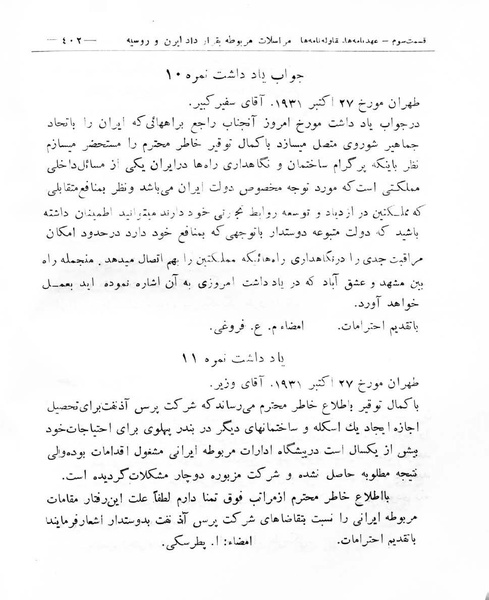 قسمت سوم – عهدنامه‌ها، مقاوله‌نامه‌ها مراسلات مربوطه بقرارداد ایرن و روسیه —۴۰۲—
جواب یاد داشت نمره ۱۰
طهران مورخ ۲۷ اکتبر ۱۹۳۱. آقای سفیر کبیر.
درجواب یاد داشت مورخ امروز آنجناب راجع براههائی‌که ایران را باتحاد
جماهیر شوروی متصل میسازد باکمال توقیر خاطر محترم را مستحضر میسازم
نظر باینکه پرگرام ساختمان و نگاهداری راه‌ها درایران یکی از مسائل‌داخلی
مملکتی است‌که مورد توجه مخصوص دولت ایران می‌باشد ونظر بمنافع‌متقابلی
که مملکتین در ازدیاد و توسعه روابط تجارتی خود دارند میتوانید اطمینان داشته
باشید که دولت متبوعه دوستدار باتوجهی‌که بمنافع خود دارد درحدود امکان
مراقبت جدی را درنگاهداری راه‌هائیکه مملکتین را بهم اتصال میدهد. منجمله راه
بین مشهد و عشق آباد که در یاد داشت امروزی به آن اشاره نموده اید بعمـل
خواهد آورد.
باتقدیم احترامات. امضاء م. ع. فروغی.
یاد داشت نمره ۱۱
طهران مورخ ۲۷ اکتبر ۱۹۳۱. آقای وزیر.
باکمال توقیر باطلاع خاطر محترم می‌رساندکه شرکت پرس آذنفت‌برای‌تحصیل
اجازه ایجاد یك اسکله و ساختمانهای دیگر در بندر پهلوی برای احتیاجات‌خود
بیش از یکسال است درپیشگاه ادارات مربوطه ایرانی مشغول اقدامات بوده‌ولی
نتیجه مطلوبه حاصل نشده و شرکت مزبوره دوچار مشکلات‌گردیده است.
بااطلاع خاطر محترم ازمراتب فوق تمنا دارم لطفاً علت این‌رفتار مقامات
مربوطه ایرانی را نسبت بتقاضاهای شرکت پرس آذ نفت بدوستدار اشعارفرمایند
باتقدیم احترامات. امضاء: ا. پطرسکی.